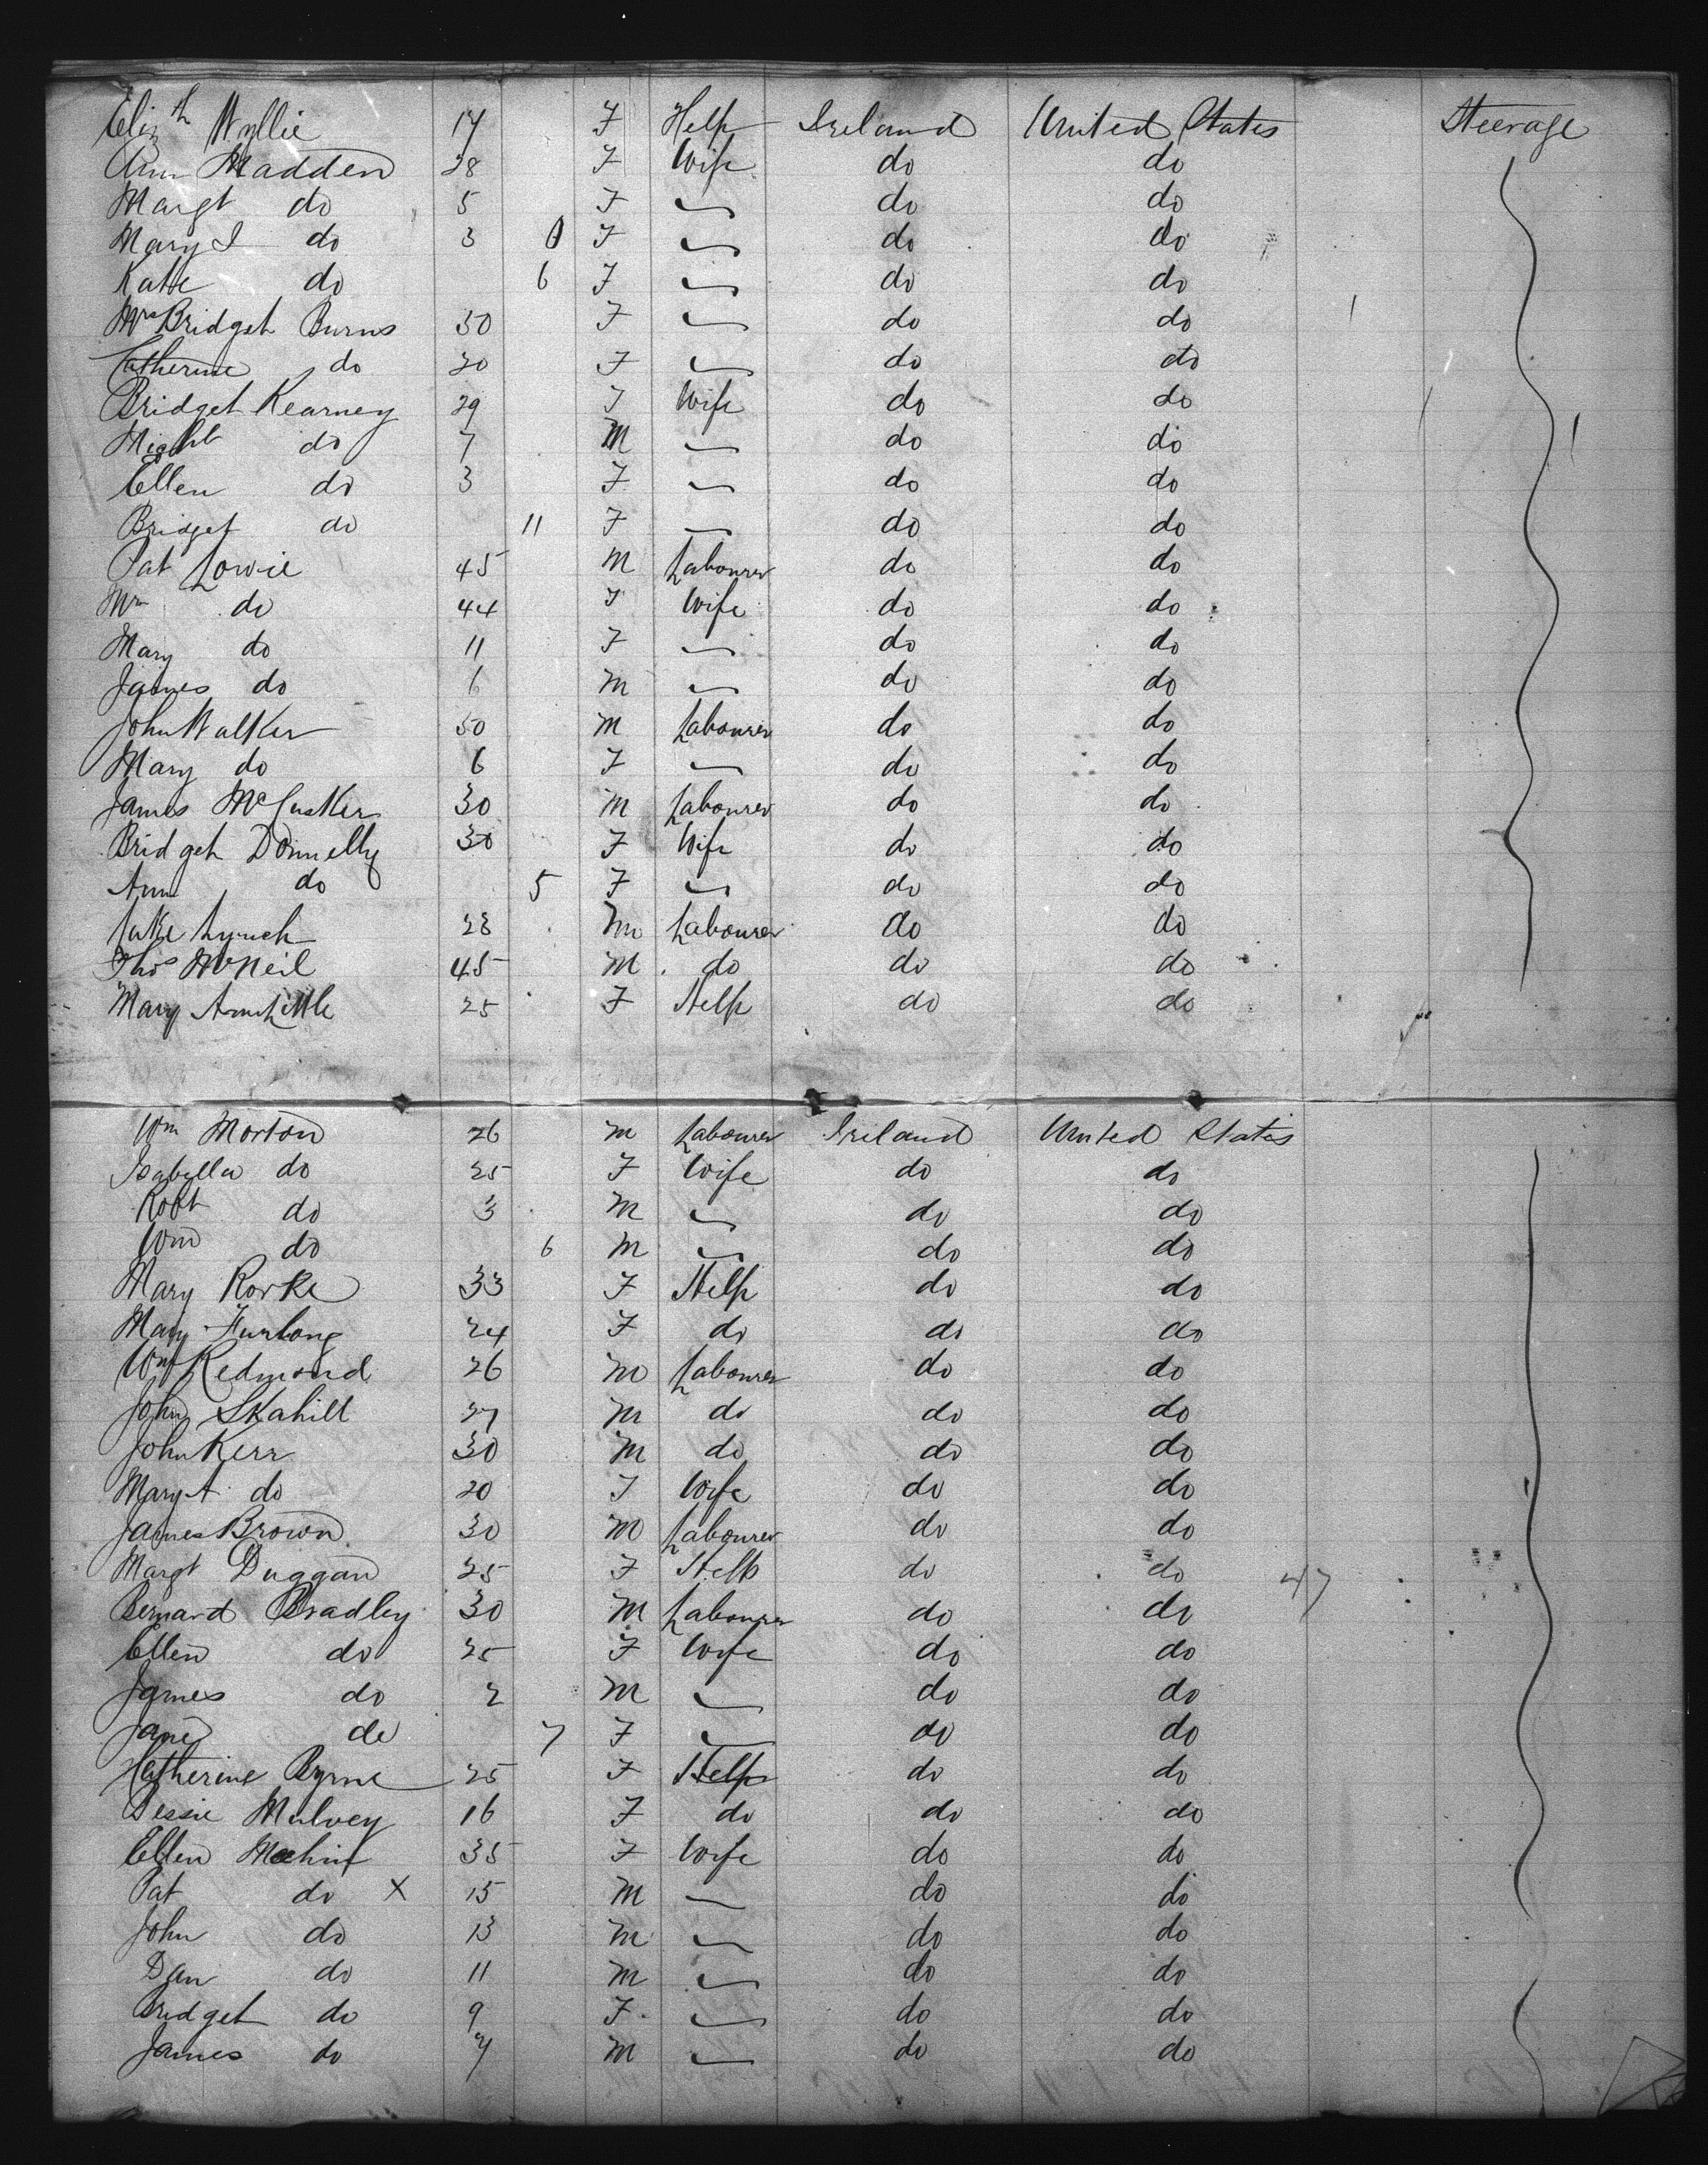 Elizth Wyllie 17 F Help Ireland United States Steerage
Ann Madden 28 F Wife do do
Margt do 5 F do do
Mary J do 3 F do do
Kate do 6 F do do
Mrs Bridget Burns 30 F do do
Catherine do 20 F do do
Bridget Kearney 29 F Wife do do
Michl do 7 M do do
Ellen do 3 F do do
Bridget do 11 F do do
Pat Lowie 45 M Labourer do do
Mrs do 44 F Wife do do
Mary do 11 F do do
James do 6 M do do
John Walker 50 M Labourer do do
Mary do 6 F do do
James McCusker 30 M Labourer do do
Bridget Donnelly 30 F Wife do do
Ann do 5 F do do
Luke Lynch 28 M Labourer do do
Thos McNeil 45 M do do do
Mary Ann Little 25 F Help do do
Wm Morton 26 M Labourer Ireland United States
Isabella do 25 F Wife do do
Robt do 3 M do do
Wm do 6 M do do
Mary Rorke 33 F Help do do
Mary Furlong 24 F do do do
Wm Redmond 26 M Labourer do do
John Skahill 27 M do do do
John Kerr 30 M do do do
Mary A do 20 F Wife do do
James Brown 30 M Labourer do do
Margt Duggan 25 F Help do do 47
Bernard Bradley 30 M Labourer do do
Ellen do 25 F Wife do do
James do 2 M do do
Jane do 7 F do do
Catherine Byrne 25 F Help do do
Bessie Mulvey 16 F do do do
Ellen Meehin 35 F Wife do do
Pat do X 15 M do do
John do 13 M do do
Dan do 11 M do do
Bridget do 9 F do do
James do 7 M do do